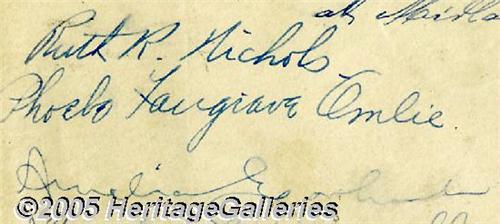 at Midla
Ruth R. Nichols
Phoebe Fairgrave Omlie.
Amelia Earhart
©2005 HeritageGalleries